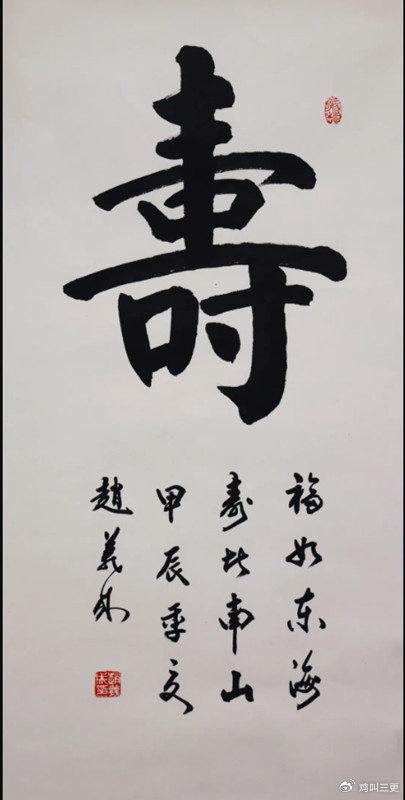 壽
福如东海
寿比南山
甲辰季夏
趙義
鸡叫三更